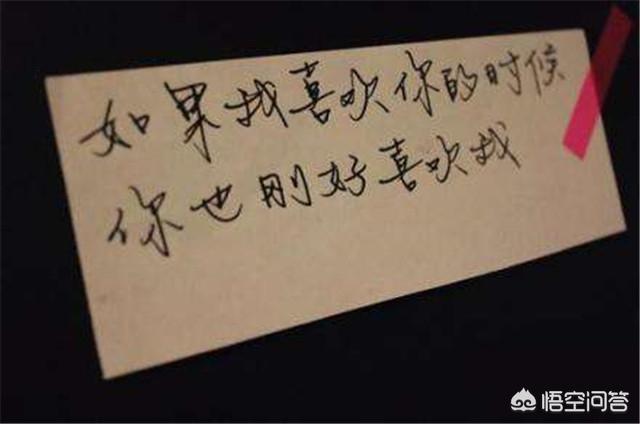 如果我喜欢你的时候
你也刚好喜欢我
悟空问答